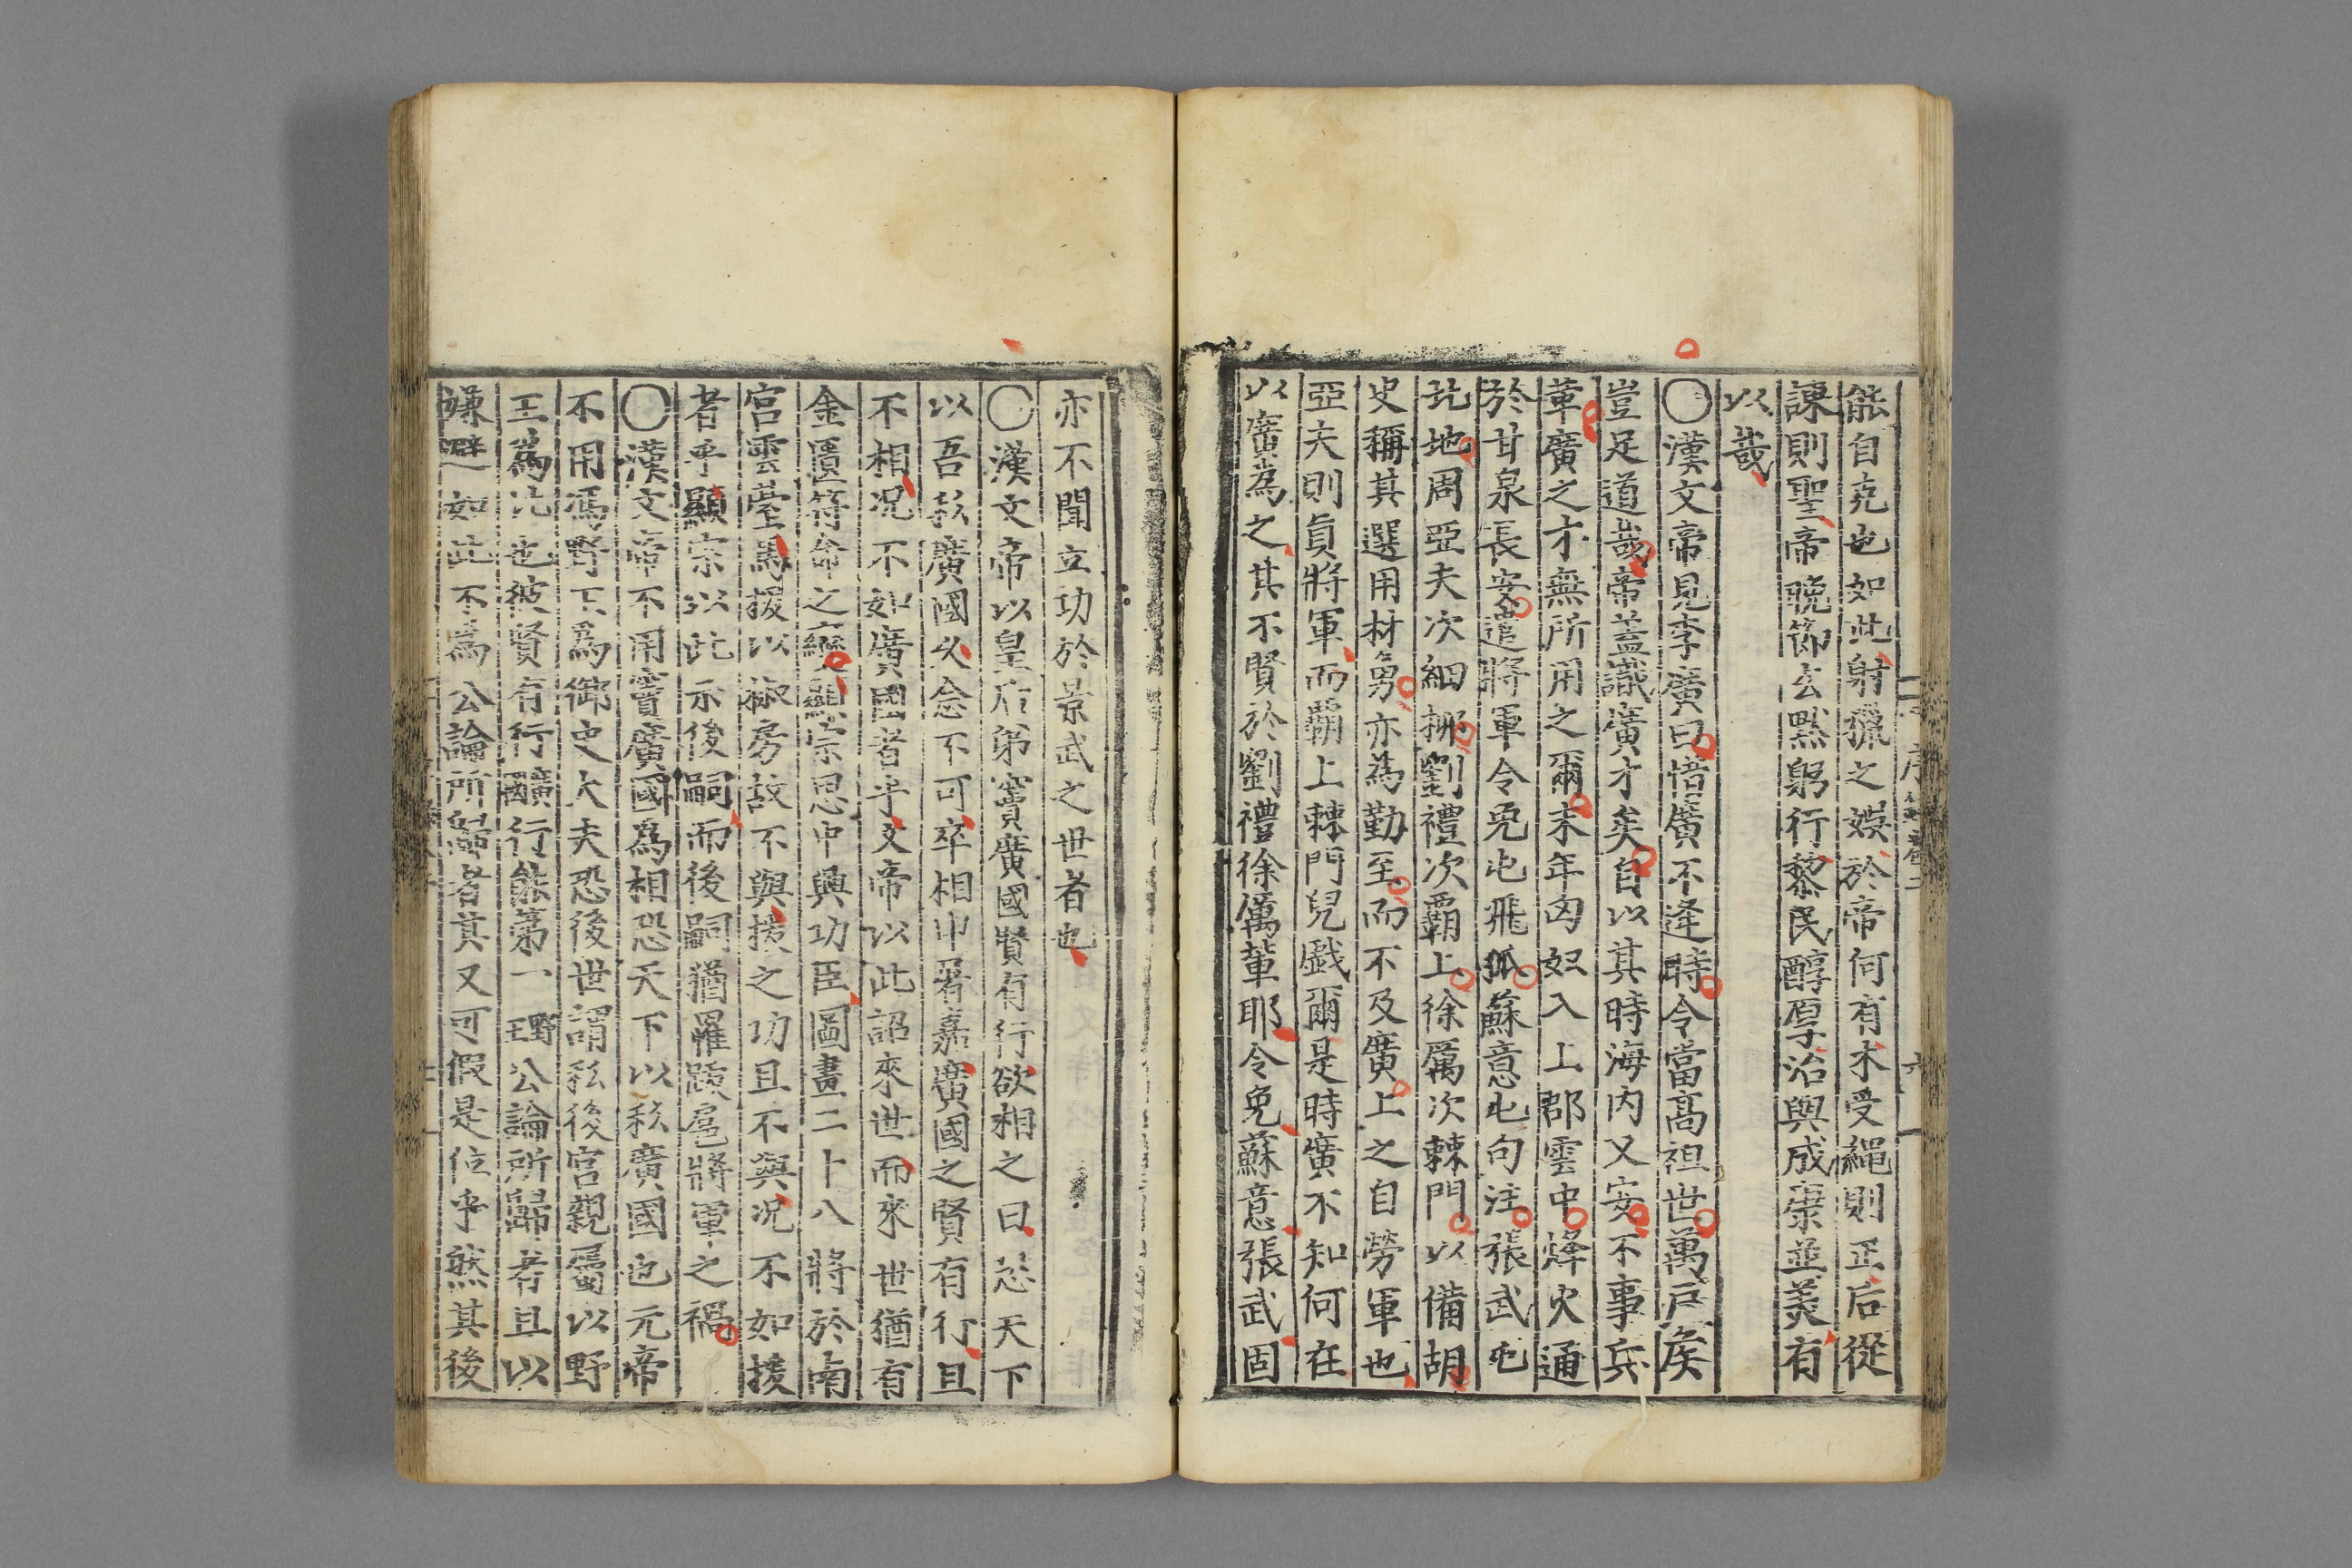 能自克也如此射獵之娛於帝何有木受繩則正后從
諫則聖帝晚節玄黙躬行黎民醇厚治與成康並美有
以哉
〇漢文帝見李廣曰惜廣不逢時令當髙祖世萬戶侯
豈足道哉帝盖識廣才矣自以其時海内又安不事兵
革廣之才無所用之爾末年匈奴入上郡雲中烽火通
於甘泉長安遣將軍令免屯飛狐蘇意屯句注張武屯
北地周亞夫次細柳劉禮次覇上徐厲次棘門以備胡
史稱其選用材勇亦為勤至而不及廣上之自勞軍也
亞夫則眞將軍而覇上棘門兒戱爾是時廣不知何在
以廣為之其不賢於劉禮徐厲軰耶令免蘇意張武固
亦不聞立功於景武之世者也
〇漢文帝以皇后弟竇廣國賢有行欲相之曰恐天下
以吾私廣國久念不可卒相申屠嘉廣國之賢有行且
不相况不如廣國者乎文帝以此詔來世而來世猶有
金匱符命之變顯宗思中興功臣圖畫二十八將於南
宮雲臺馬援以椒房故不與援之功且不與况不如援
者乎顯宗以此示後嗣而後嗣猶罹跋扈將軍之禍
〇漢文帝不用竇廣國爲相恐天下以私廣國也元帝
不用馮野王爲御史大夫恐後世謂私後宮親屬以野
王爲比也彼賢有行國廣行能第一野王公論所歸者且以
嫌避如此不爲公論所歸者其又可假是位乎然其後